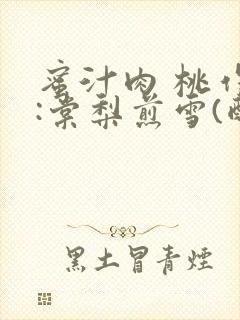 蜜汁肉桃作
:棠梨煎雪(酥
黑土冒青煙